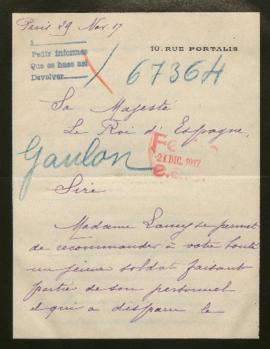 Paris 29 Nov. 17
10, RUE PORTALIS
Pedir informes
Que se hace así
Devolver
67364
Sa Majesté
Le Roi d'Espagne,
Gaulon
21 DIC. 1917
Sire
Madame Lamy se permet
de recommander à votre bonté
un jeune soldat faisant
partie de son personnel
et qui a disparu le